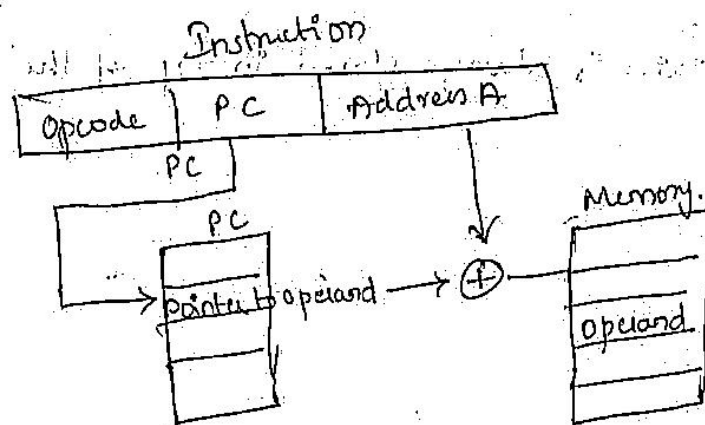 Instruction
Opcode PC Address A
PC
PC
Memory.
pointer to operand
operand